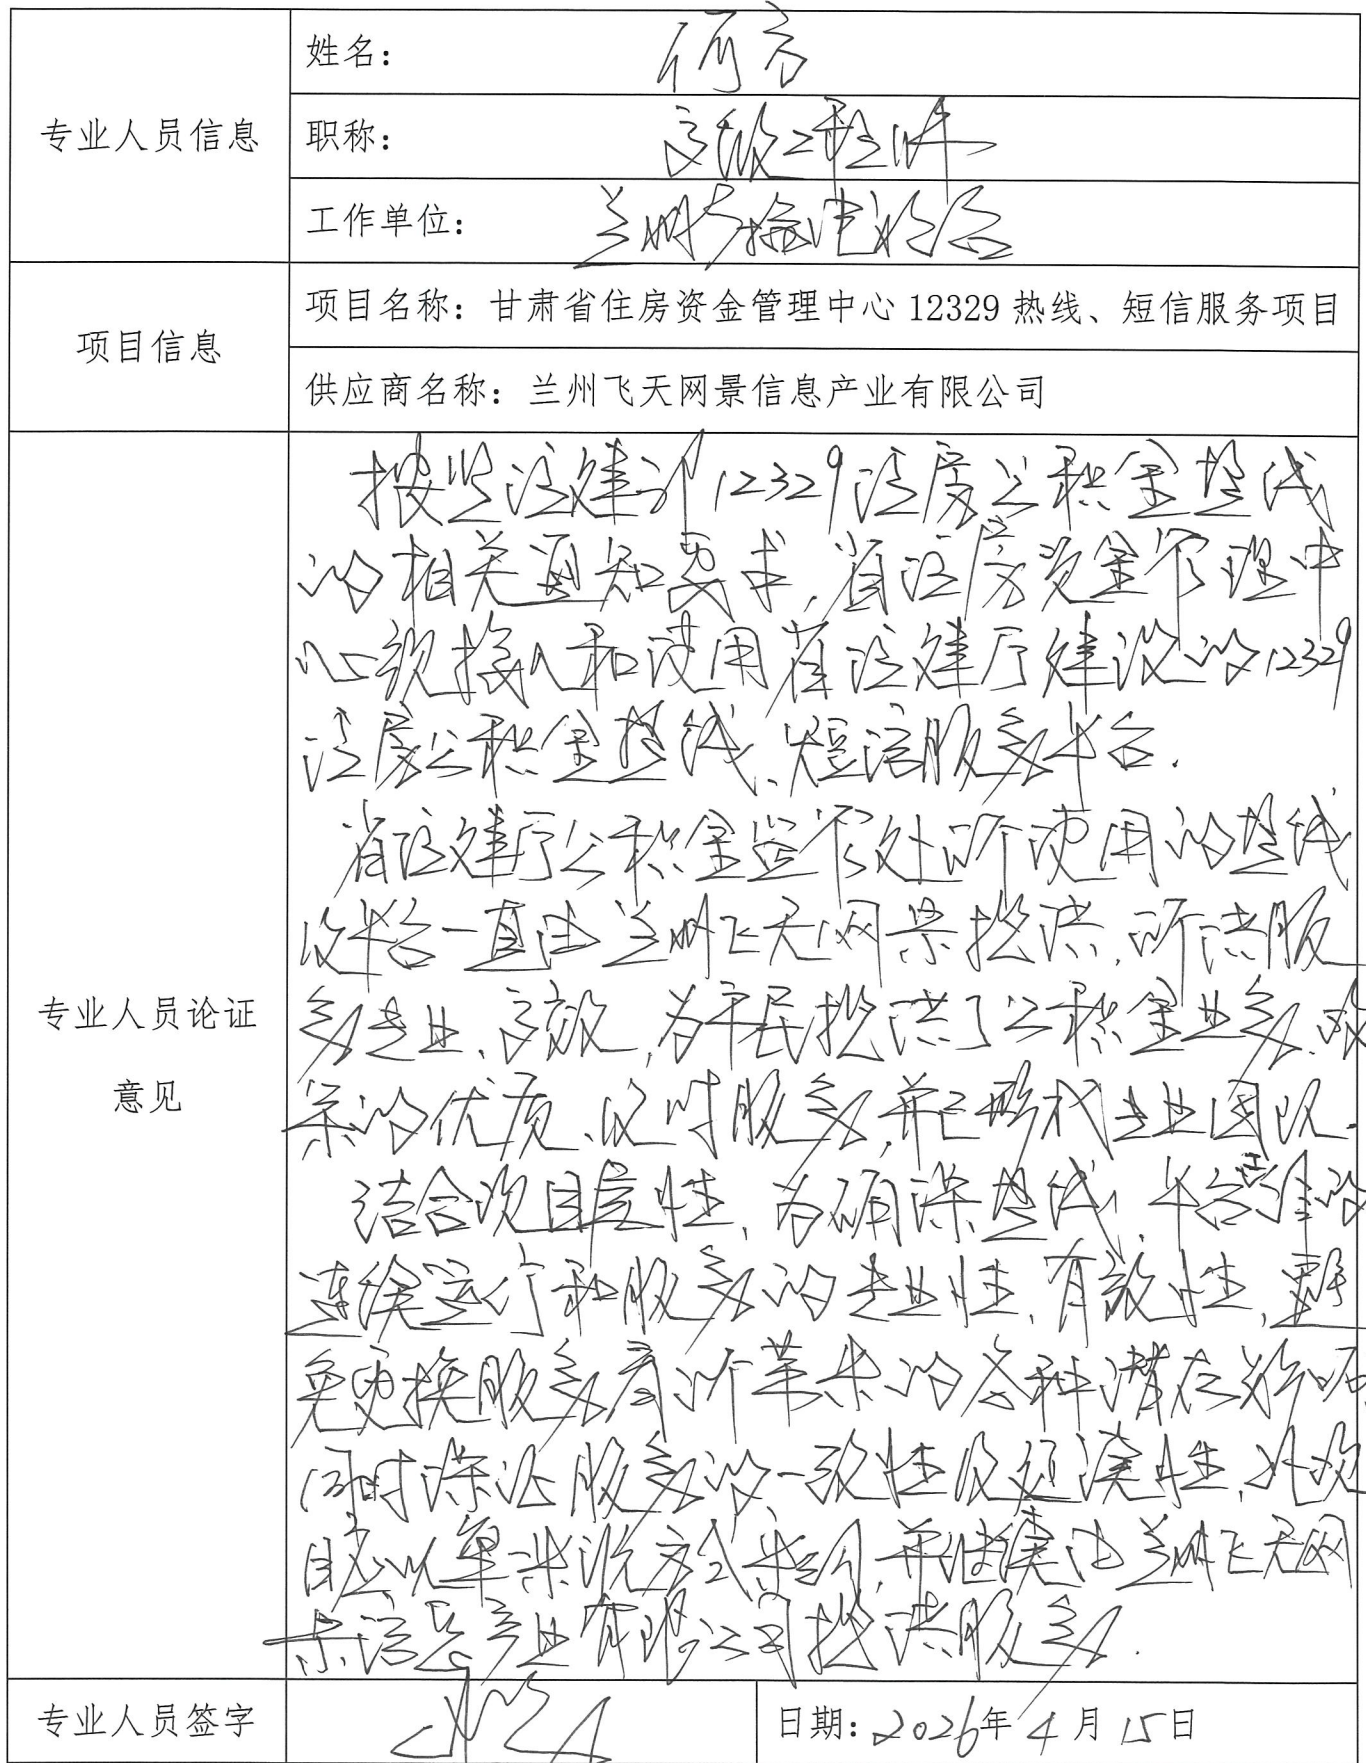 专业人员信息
姓名：何方
职称：高级工程师
工作单位：兰州
项目信息
项目名称：甘肃省住房资金管理中心 12329 热线、短信服务项目
供应商名称：兰州飞天网景信息产业有限公司
专业人员论证
意见
按照住建部12329住房公积金热线
的相关通知要求，省住房资金管理中
心须接入和使用省住建厅建设的12329
住房公积金热线、短信服务平台.
省住建厅公积金监管处所使用的热线
及平台一直由兰州飞天网景提供，所供服
务专业、高效，为市民提供了公积金业务、政
策的优质、及时服务，并已形成专业团队.
结合项目属性，为确保热线、平台的
连续运行和服务的专业性，有效性，避
免更换服务商所带来的各种潜在影响，
同时保证服务的一致性及延续性，此项
目应以单一来源方式采购，并继续由兰州飞天网
景信息产业有限公司提供服务.
专业人员签字
日期：2026年4月15日